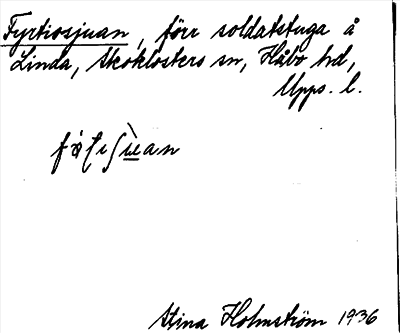 Fyrtiosjuan, förr soldatstuga å
Linda, Skoklosters sn, Håbo hd,
Upps. l.
Stina Holmström 1936